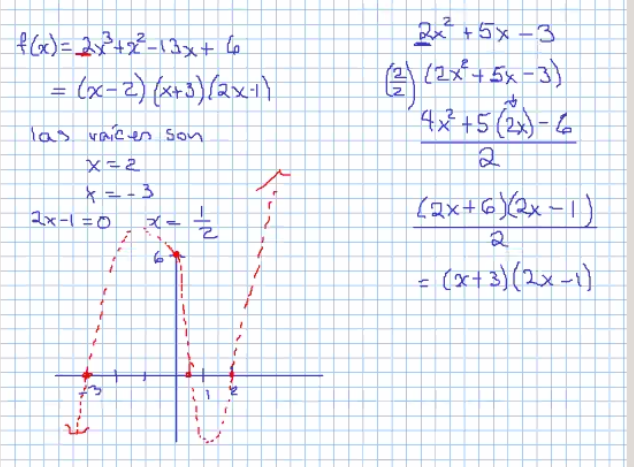 f(x) = 2x³ + x² - 13x + 6
= (x - 2)(x + 3)(2x - 1)
las raices son
x = 2
x = -3
2x - 1 = 0 x = 1/2
6
-3 1 2
2x² + 5x - 3
(2/2)(2x² + 5x - 3)
4x² + 5(2x) - 6
2
(2x + 6)(2x - 1)
2
= (x + 3)(2x - 1)